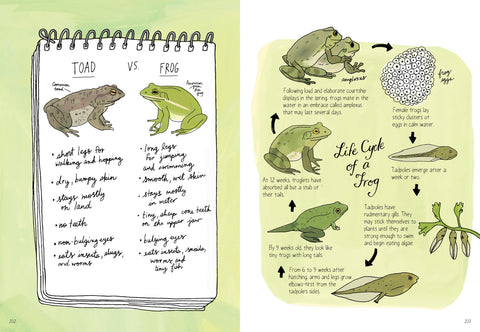 TOAD VS. FROG
Common
toad
American
green
tree
frog
• short legs for
walking and hopping
• dry, bumpy skin
• stays mostly
on land
• no teeth
• non-bulging eyes
• eats insects, slugs,
and worms
• long legs
for jumping
and swimming
• smooth, wet skin
• stays mostly
in water
• tiny, sharp cone teeth
on the upper jaw
• bulging eyes
• eats insects, snails,
worms and
tiny fish
202
Life Cycle
of a
Frog
amplexus
Following loud and elaborate courtship
displays in the spring, frogs mate in the
water in an embrace called amplexus
that may last several days.
frog
eggs
Female frogs lay
sticky clusters of
eggs in calm water.
Tadpoles emerge after a
week or two.
Tadpoles have
rudimentary gills. They
may stick themselves to
plants until they are
strong enough to swim
and begin eating algae.
From 6 to 9 weeks after
hatching, arms and legs grow
elbows-first from the
tadpole's sides.
By 9 weeks old, they look like
tiny frogs with long tails.
At 12 weeks, froglets have
absorbed all but a stub of
their tails.
203